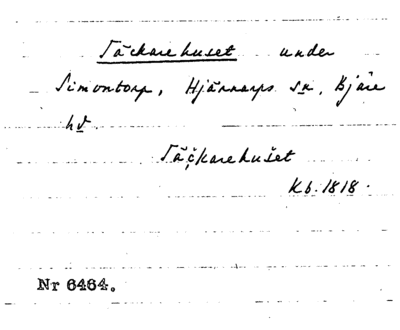 Täckarehuset under
Simontorp, Hjärnarps sn, Bjäre
hd.
Täckarehuset
Kb. 1818.
Nr 6464.